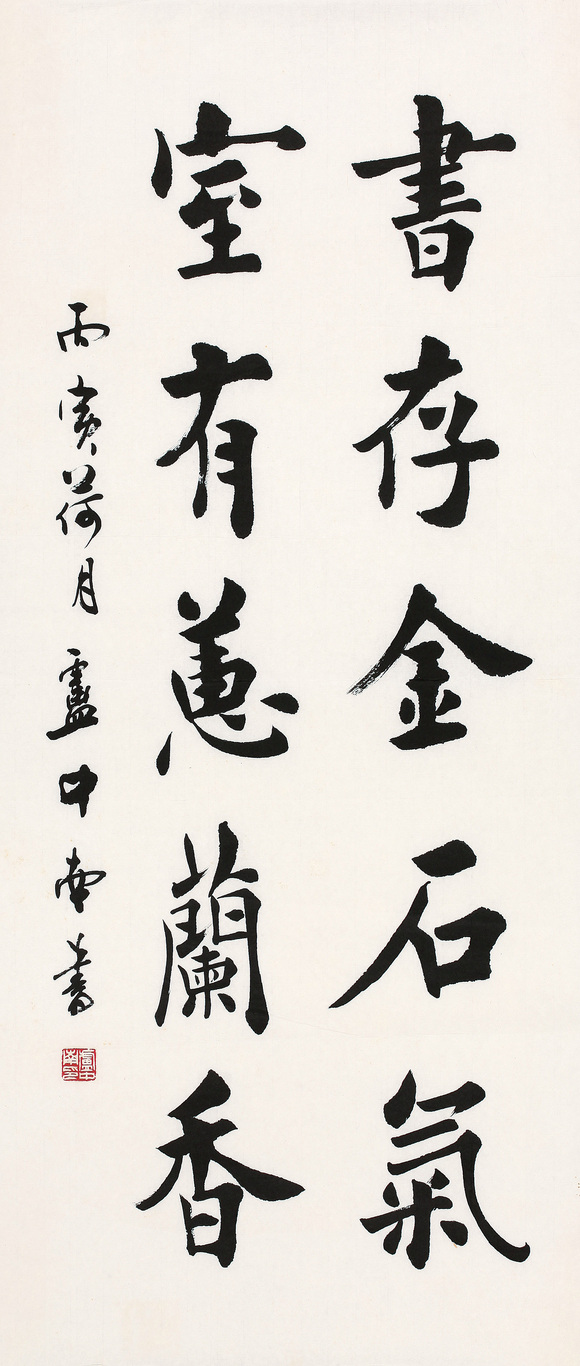 書存金石氣
室有蕙蘭香
丙寅荷月盧中南書
盧中南印